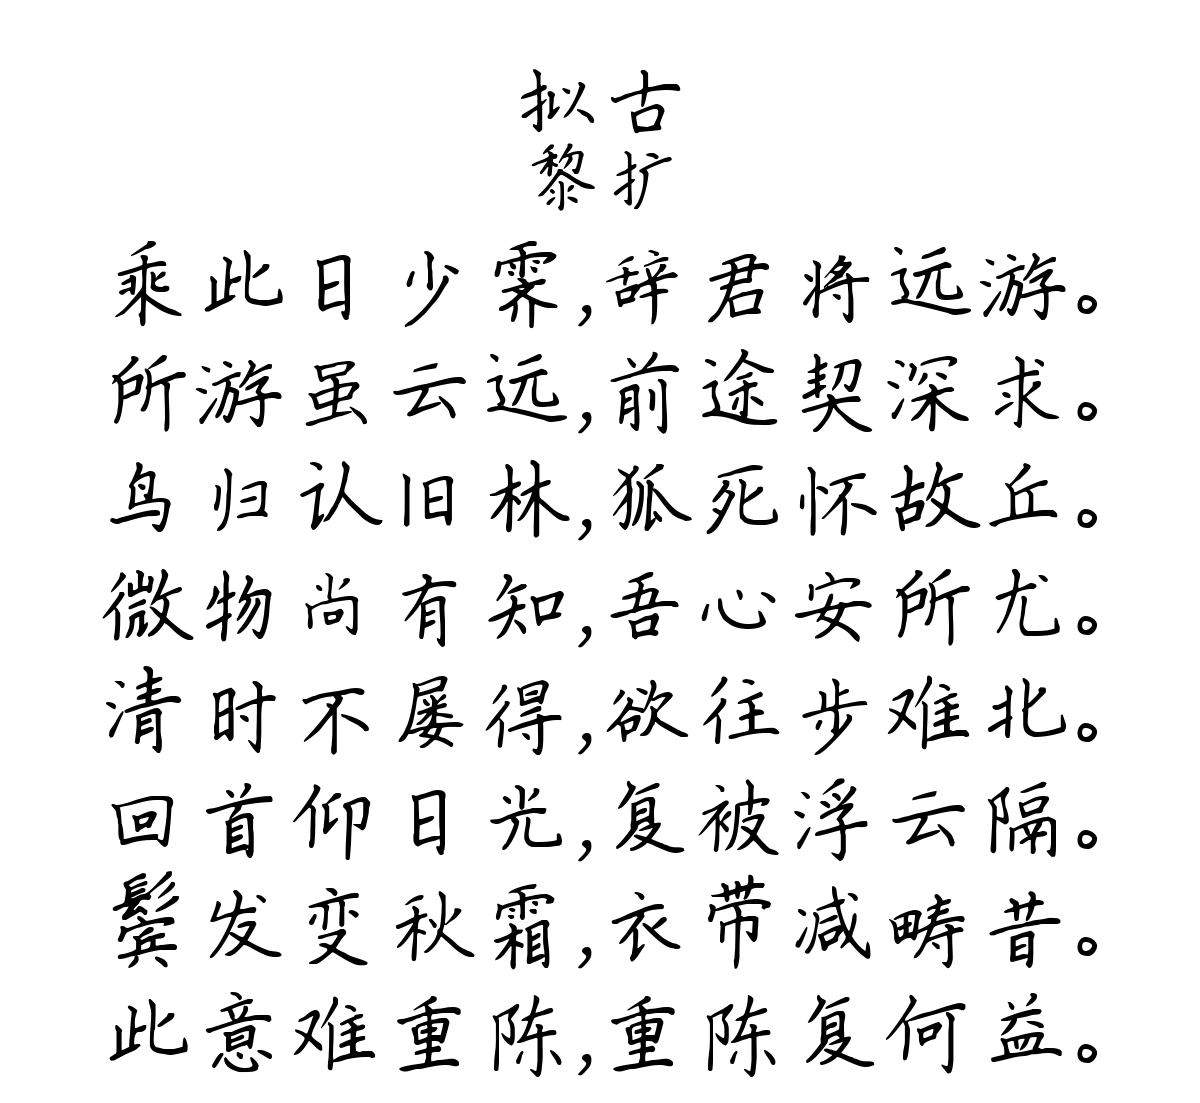 拟古
黎扩
乘此日少霁,辞君将远游。
所游虽云远,前途契深求。
鸟归认旧林,狐死怀故丘。
微物尚有知,吾心安所尤。
清时不屡得,欲往步难北。
回首仰日光,复被浮云隔。
鬓发变秋霜,衣带减畴昔。
此意难重陈,重陈复何益。